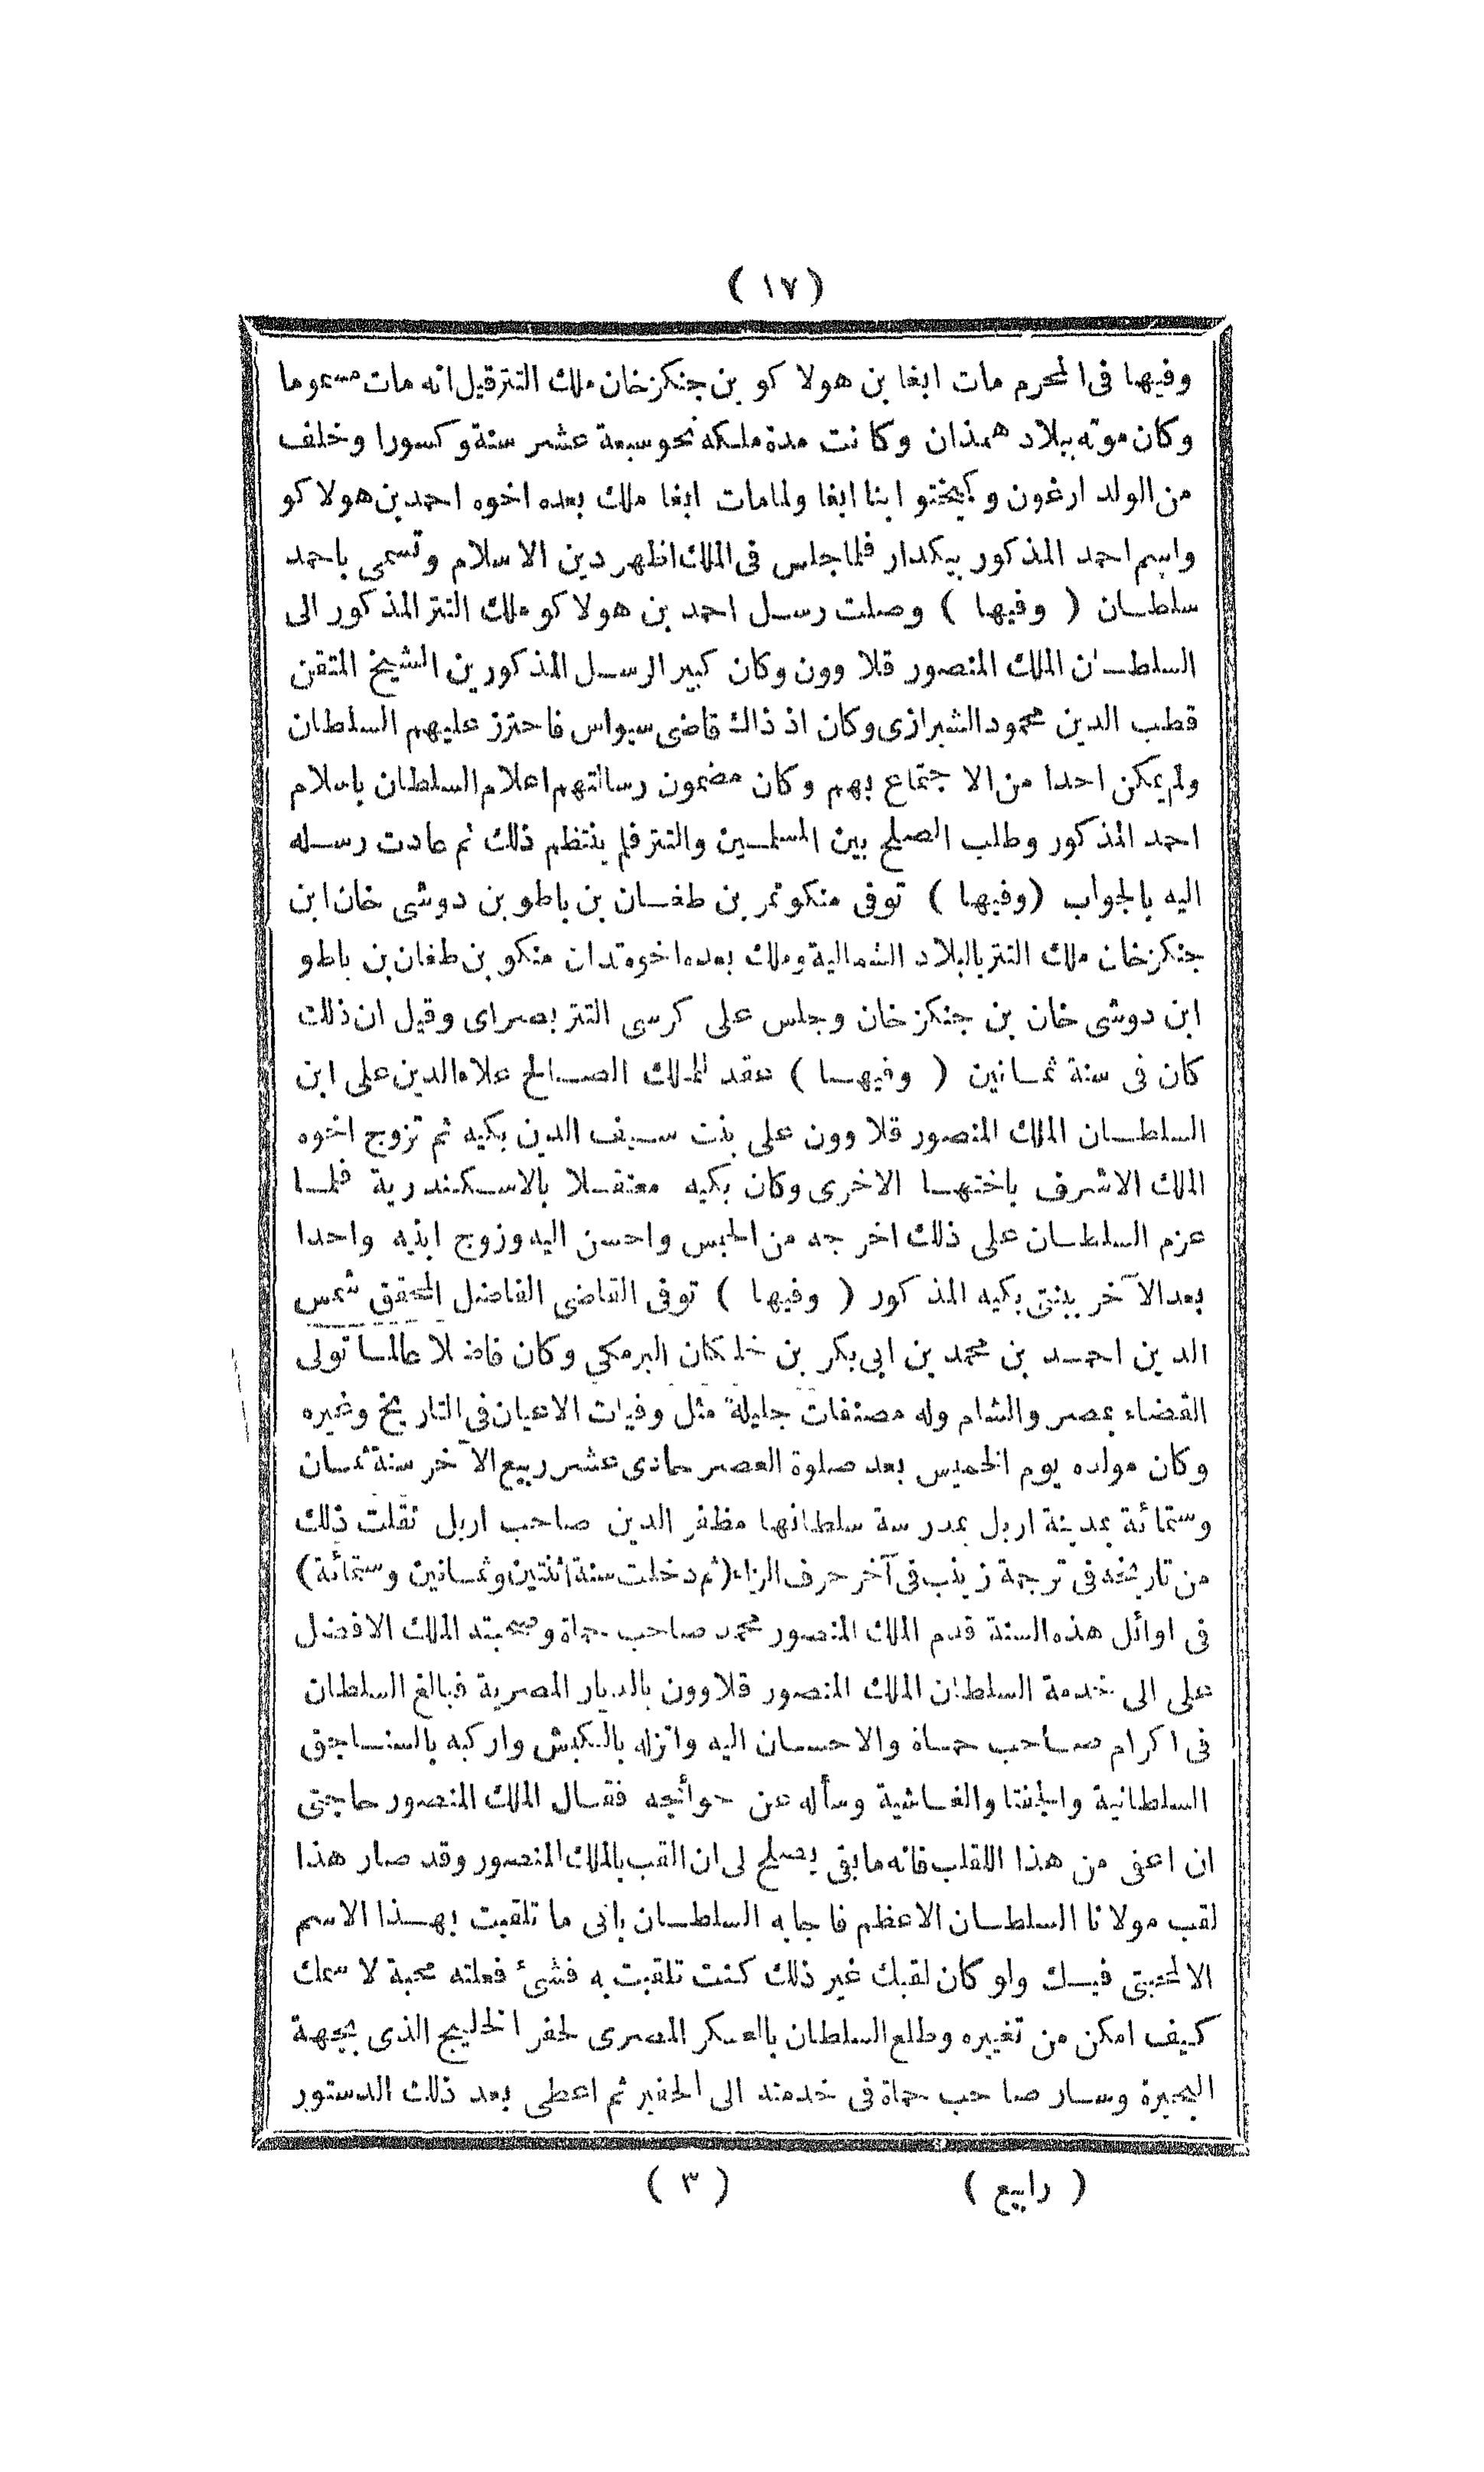 ( ١٧ )
وفيها فى المحرم مات ابغا بن هولا كو بن جنكزخان ملك التتر قيل انه مات مسموما
وكان موته ببلاد همذان وكا نت مدة ملكه نحو سبعة عشر سنة وكسورا وخلف
من الولد ارغون وكيختو ابنا ابغا ولما مات ابغا ملك بعده اخوه احمد بن هولا كو
واسم احمد المذكور بيكدار فلما جلس فى الملك اظهر دين الاسلام وتسمى باحمد
سلطان ( وفيها ) وصلت رسل احمد بن هولا كو ملك التتر المذكور الى
السلطان الملك المنصور قلا وون وكان كبير الرسل المذكورين الشيخ المتقن
قطب الدين محمود الشيرازى وكان اذ ذاك قاضى سيواس فاحترز عليهم السلطان
ولم يمكن احدا من الا جتماع بهم وكان مضمون رسالتهم اعلام السلطان باسلام
احمد المذكور وطلب الصلح بين المسلمين والتتر فلم ينتظم ذلك ثم عادت رسله
اليه بالجواب (وفيها ) توفى منكوتمر بن طغان بن باطو بن دوشى خان ابن
جنكزخان ملك التتر بالبلاد الشمالية وملك بعده اخوه تدان منكو بن طغان بن باطو
ابن دوشى خان بن جنكزخان وجلس على كرسى التتر بصراى وقيل ان ذلك
كان فى سنة ثمانين ( وفيها ) عقد للملك الصالح علاء الدين على ابن
السلطان الملك المنصور قلا وون على بنت سيف الدين بكيه ثم تزوج اخوه
الملك الاشرف باختها الاخرى وكان بكيه معتقلا بالاسكندرية فلما
عزم السلطان على ذلك اخر جه من الحبس واحسن اليه وزوج ابنيه واحدا
بعد الآخر ببنتى بكيه المذ كور ( وفيها ) توفى القاضى الفاضل المحقق شمس
الدين احمد بن محمد بن ابى بكر بن خلكان البرمكى وكان فاضلا عالما تولى
القضاء بمصر والشام وله مصنفات جليلة مثل وفيات الاعيان فى التاريخ وغيره
وكان مولده يوم الخميس بعد صلوة العصر حادى عشر ربيع الآخر سنة ثمان
وستمائة بمدينة اربل بمدرسة سلطانها مظفر الدين صاحب اربل نقلت ذلك
من تاريخه فى ترجمة زينب فى آخر حرف الزاء (ثم دخلت سنة اثنتين وثمانين وستمائة)
فى اوائل هذه السنة قدم الملك المنصور محمد صاحب حماة وصحبته الملك الافضل
على الى خدمة السلطان الملك المنصور قلاوون بالديار المصرية فبالغ السلطان
فى اكرام صاحب حماة والاحسان اليه وانزله بالكبش واركبه بالسناجق
السلطانية والجفتا والغاشية وسأله عن حوائجه فقال الملك المنصور حاجتى
ان اعفى من هذا اللقلب فانه ما بقى يصلح لى ان القب بالملك المنصور وقد صار هذا
لقب مولانا السلطان الاعظم فاجابه السلطان بانى ما تلقبت بهذا الاسم
الا لمحبتى فيك ولو كان لقبك غير ذلك كنت تلقبت به فشئ فعلته محبة لاسمك
كيف امكن من تغييره وطلع السلطان بالعسكر المصرى لحفر الخليج الذى بجهة
البحيرة وسار صاحب حماة فى خدمته الى الحفير ثم اعطى بعد ذلك الدستور
( رابع ) ( ٣ )